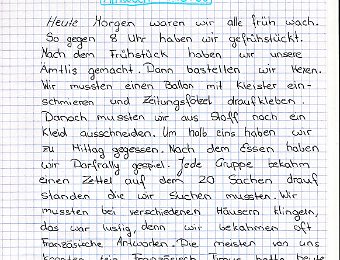 Heute Morgen waren wir alle früh wach.
So gegen 8 Uhr haben wir gefrühstückt.
Nach dem Frühstück haben wir unsere
Ämtlis gemacht. Dann bastelten wir Hexen.
Wir mussten einen Ballon mit Kleister ein-
schmieren und Zeitungsfötzel draufkleben.
Danach mussten wir aus Stoff noch ein
Kleid ausschneiden. Um halb eins haben wir
zu Mittag gegessen. Nach dem Essen haben
wir Dorfrally gespiel. Jede Gruppe bekahm
einen Zettel auf dem 20 Sachen drauf
standen die wir suchen mussten. Wir
mussten bei verschiedenen Häusern klingeln,
das war lustig, denn wir bekahmen oft
Französische Antworten. Die meisten von uns
konnten kein Französisch